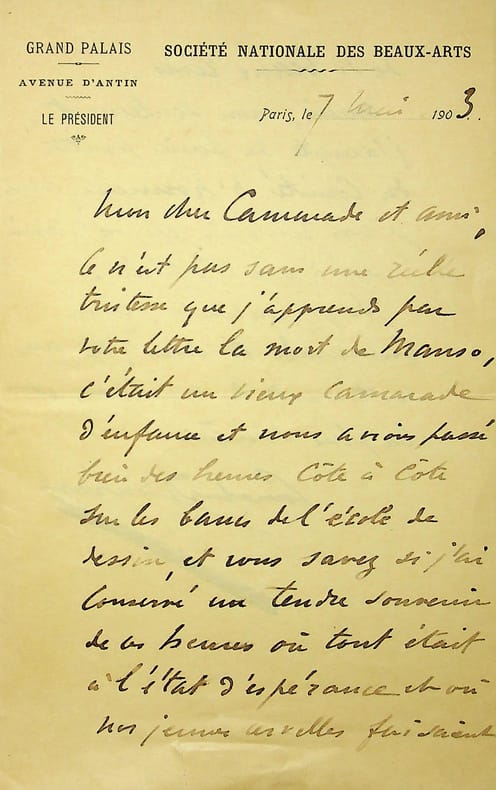 GRAND PALAIS
AVENUE D'ANTIN
LE PRÉSIDENT
SOCIÉTÉ NATIONALE DES BEAUX-ARTS
Paris, le 7 Mai 1903.
Mon cher Camarade et ami,
Ce n'est pas sans une réelle
tristesse que j'apprends par
votre lettre la mort de Manso,
c'était un vieux Camarade
d'enfance et nous avions passé
bien des heures Côte à Côte
sur les bancs de l'école de
dessin, et vous savez si j'ai
Conservé un tendre souvenir
de ces heures où tout était
à l'état d'espérance et où
nos jeunes cervelles faisaient